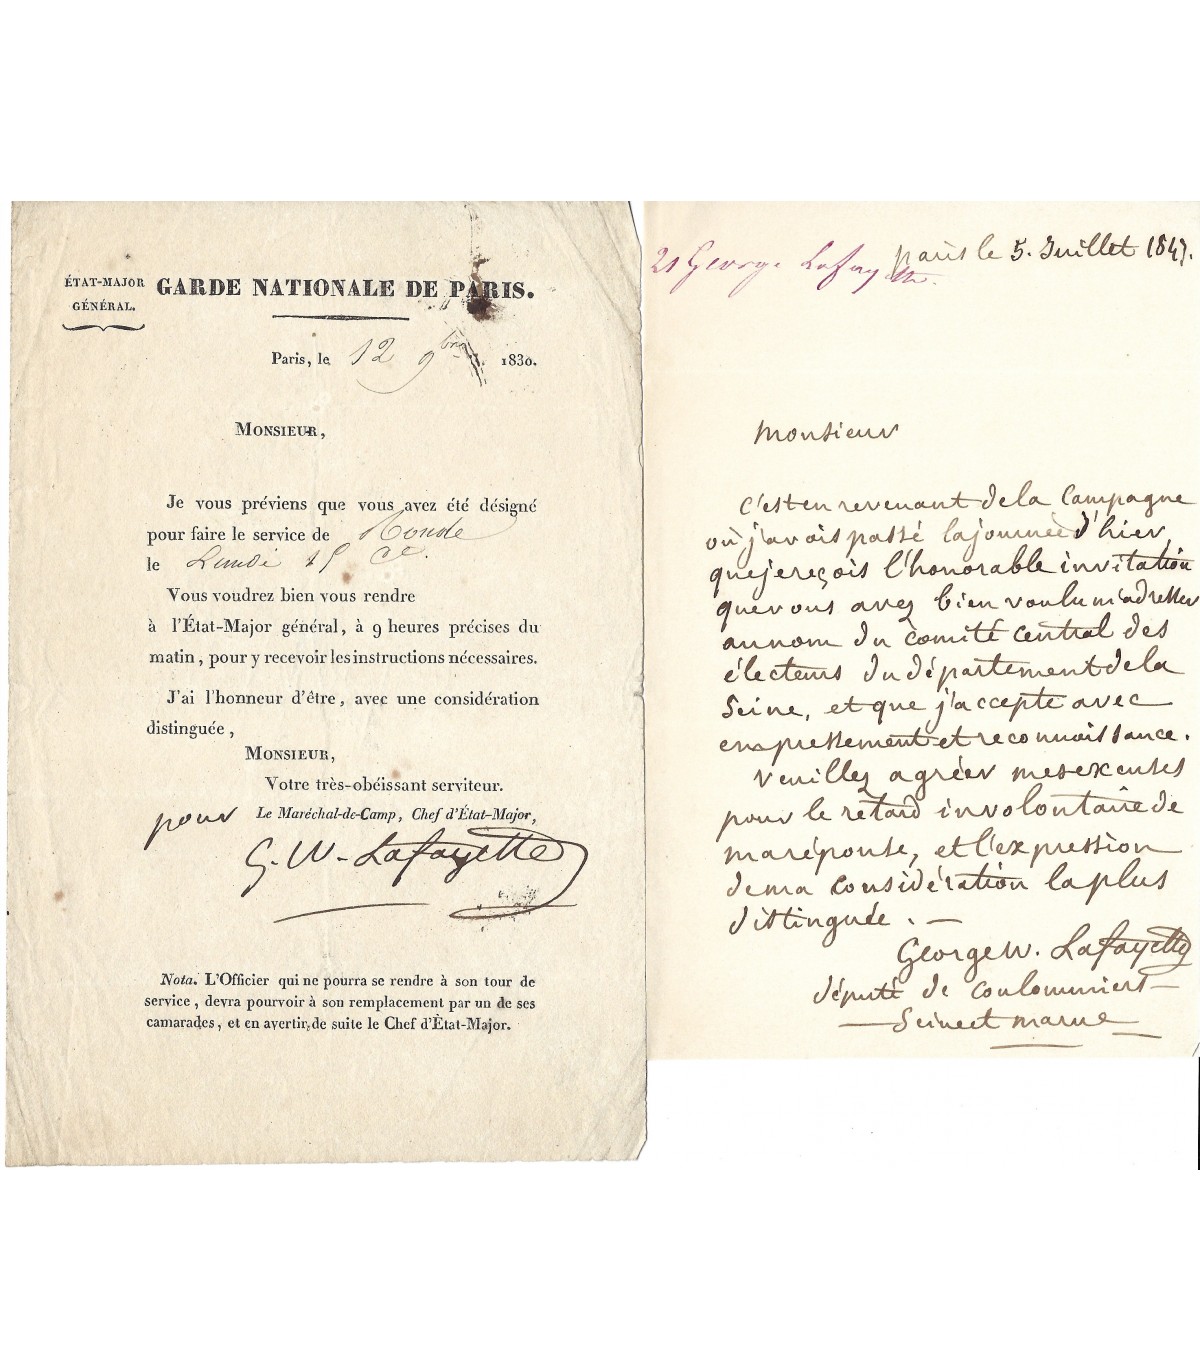 ÉTAT-MAJOR
GÉNÉRAL.
GARDE NATIONALE DE PARIS.
Paris, le 12 9bre 1830.
MONSIEUR,
Je vous préviens que vous avez été désigné
pour faire le service de Ronde
le Lundi 15 Ct.
Vous voudrez bien vous rendre
à l'État-Major général, à 9 heures précises du
matin, pour y recevoir les instructions nécessaires.
J'ai l'honneur d'être, avec une considération
distinguée,
MONSIEUR,
Votre très-obéissant serviteur.
pour Le Maréchal-de-Camp, Chef d'État-Major,
G. W. Lafayette
Nota. L'Officier qui ne pourra se rendre à son tour de
service, devra pourvoir à son remplacement par un de ses
camarades, et en avertir de suite le Chef d'État-Major.
21 George Lafayette.
paris le 5. Juillet 1847.
Monsieur
c'est en revenant de la Campagne
où j'avois passé la journée d'hier
que je reçois l'honorable invitation
que vous avez bien voulu m'adresser
au nom du comité central des
électeurs du département de la
Seine, et que j'accepte avec
empressement et reconnoissance.
Veuillez agréer mes excuses
pour le retard involontaire de
ma réponse, et l'expression
de ma considération la plus
distinguée. —
George W. Lafayette
député de coulommiers —
— Seine et marne —